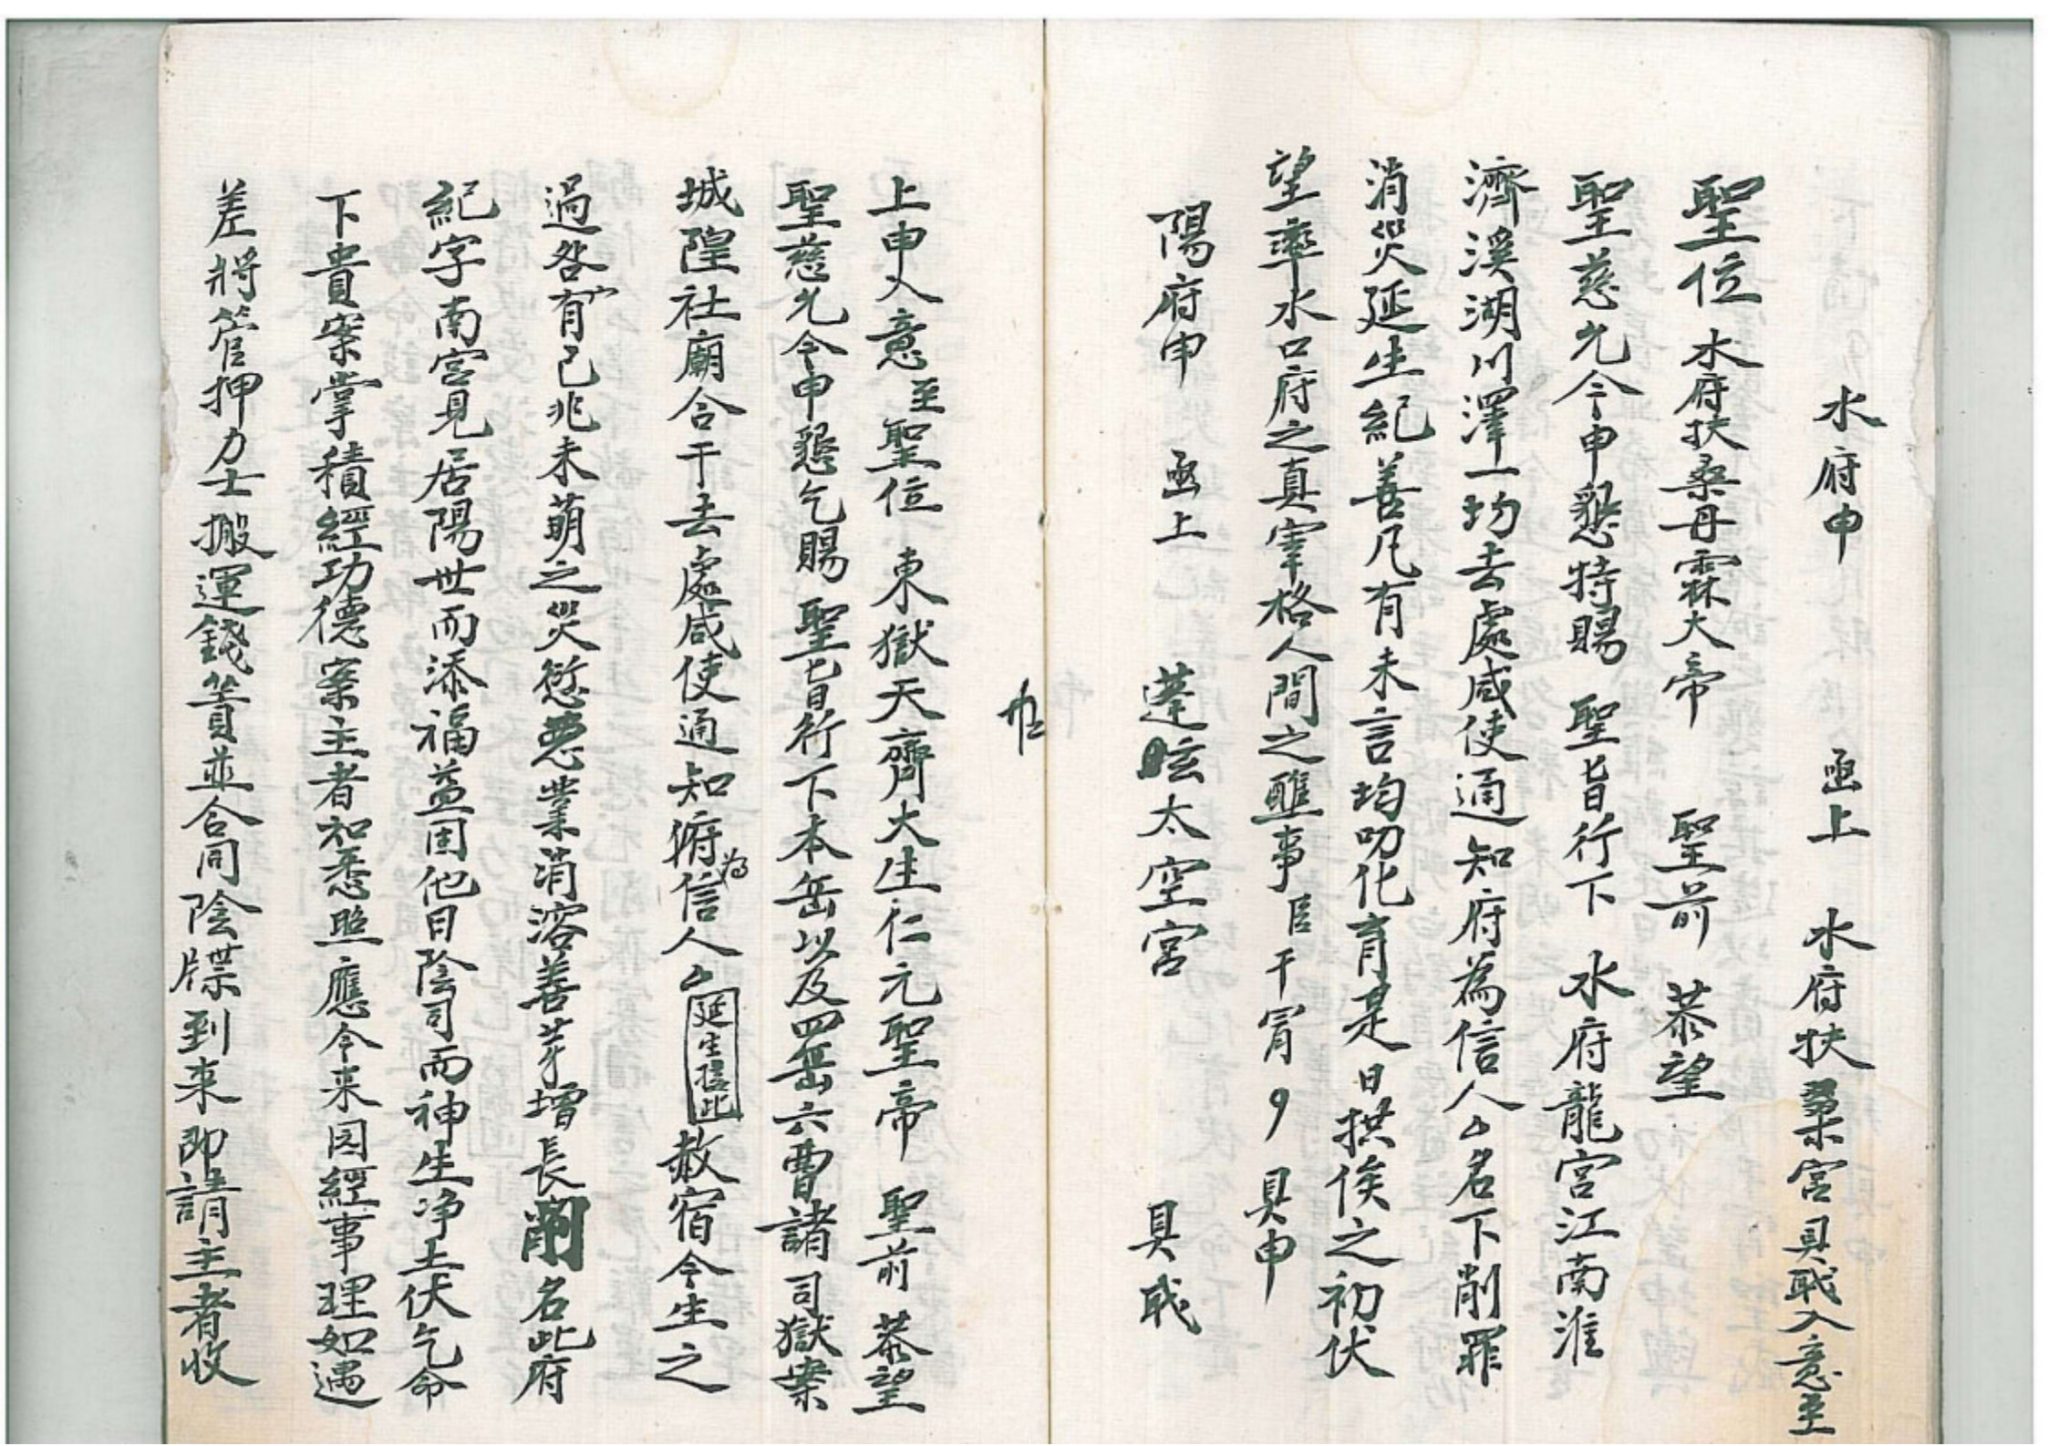 水府申 函上 水府扶桑宮 具职入意至
聖位 水府扶桑丹霖大帝 聖前 恭望
聖慈允今申懇特賜 聖旨行下 水府龍宮江南淮
濟溪湖川澤一切去處咸使通知府為信人厶名下削罪
消災延生紀善凡有未言均叨化育是日拱俟之初伏
望率水口府之真宰格人間之醮事臣干冒 具申
陽府申 函上 蓬玄太空宮 具职
上申入意至聖位 東獄天齊大生仁元聖帝 聖前 恭望
聖慈允今申懇乞賜 聖旨行下本岳以及四岳六曹諸司獄案
城隍社廟合干去處咸使通知俯為信人厶延生接此赦宿今生之
過咎宥已兆未萌之災愆惡業消溶善芽增長削名此府
紀字南宮見居陽世而添福益固他日陰司而神生净土伏乞命
下貴案掌積經功德案主者知悉照應今来因經事理如遇
差將管押力士搬運錢貫並合同陰牒到来即請主者收